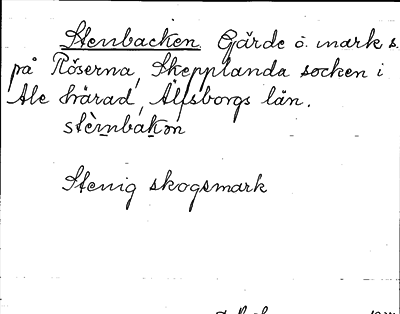 Stenbacken Gärde o. mark s.
på Röserna, Skepplanda socken i
Ale härad, Älfsborgs län.
stè̀nbàkon
Stenig skogsmark